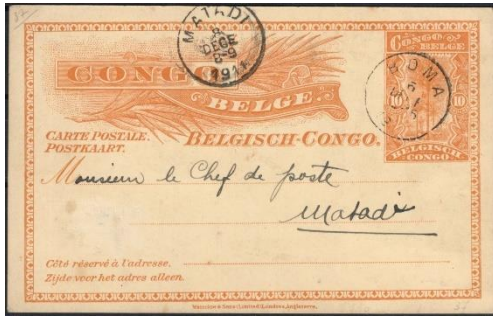 MATADI
DECE
8-9
1911
CONGO
BELGE.
CONGO
BELGE
10 10
BELGISCH
CONGO
BOMA
CARTE POSTALE.
POSTKAART.
BELGISCH-CONGO.
Monsieur le Chef de poste
Matadi
Côté réservé à l'adresse.
Zijde voor het adres alleen.
Waterlow & Sons Limited, Londres, Angleterre.